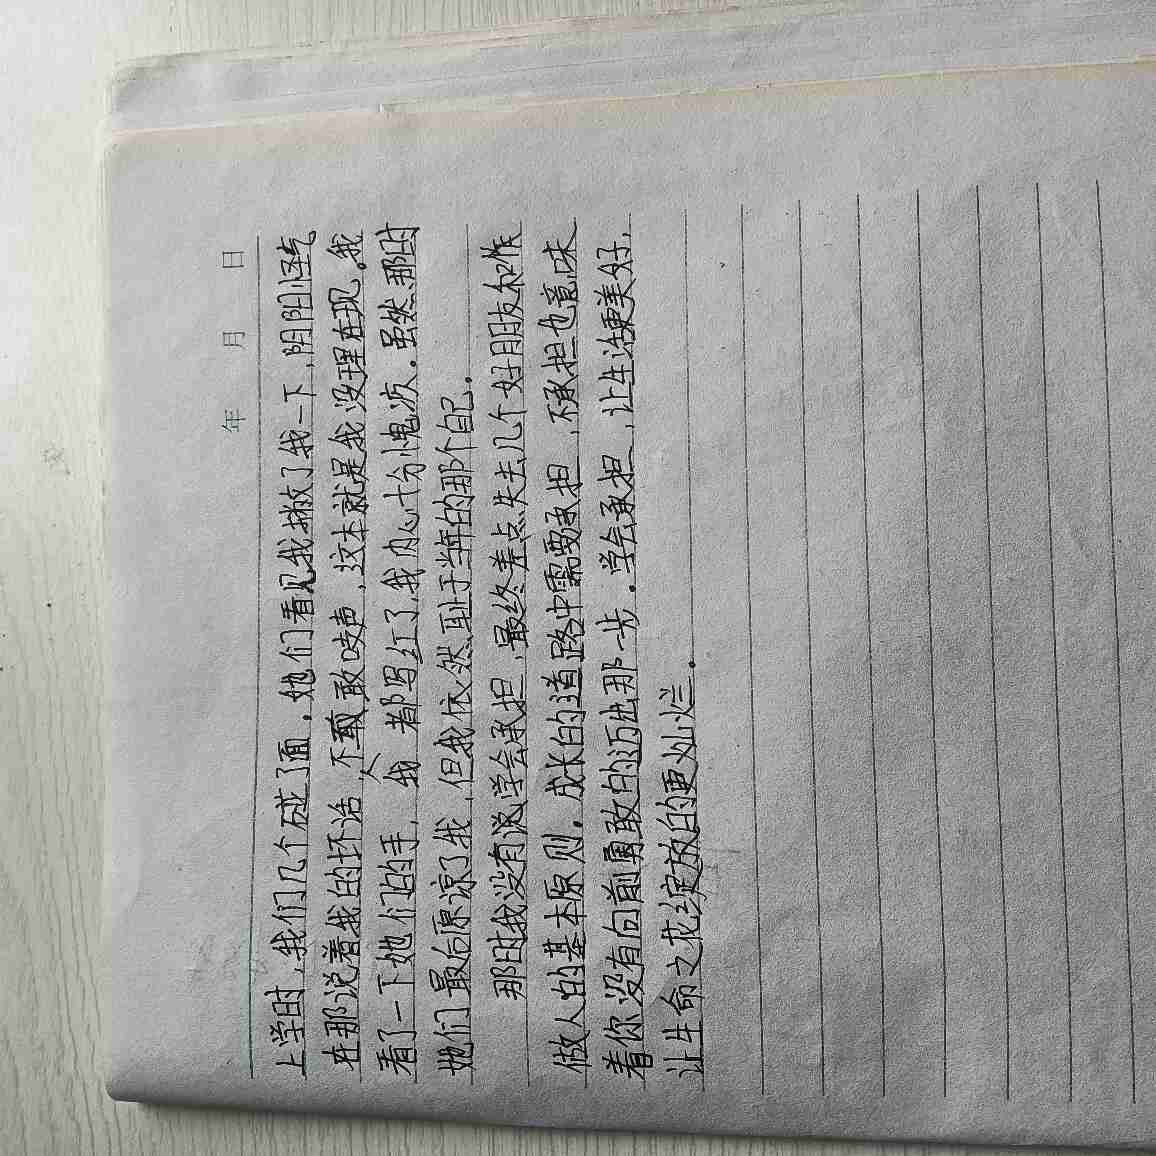 年 月 日
上学时，我们几个碰了面。她们看见我撇了我一下，阴阳怪气
在那说着我的坏话，不敢吱声，这本就是我没理在现。我
看了一下她们的手，我人都写红了，我内心十分愧疚。虽然那时
她们最后原谅了我，但我依然耻于当年的那个自己。
那时我没有说学会承担，最终差点失去几个好朋友和作
做人的基本原则。成长的道路中需要承担，不承担也意味
着你没有向前勇敢的迈出那一步。学会承担，让生活更美好，
让生命之花绽放的更灿烂。